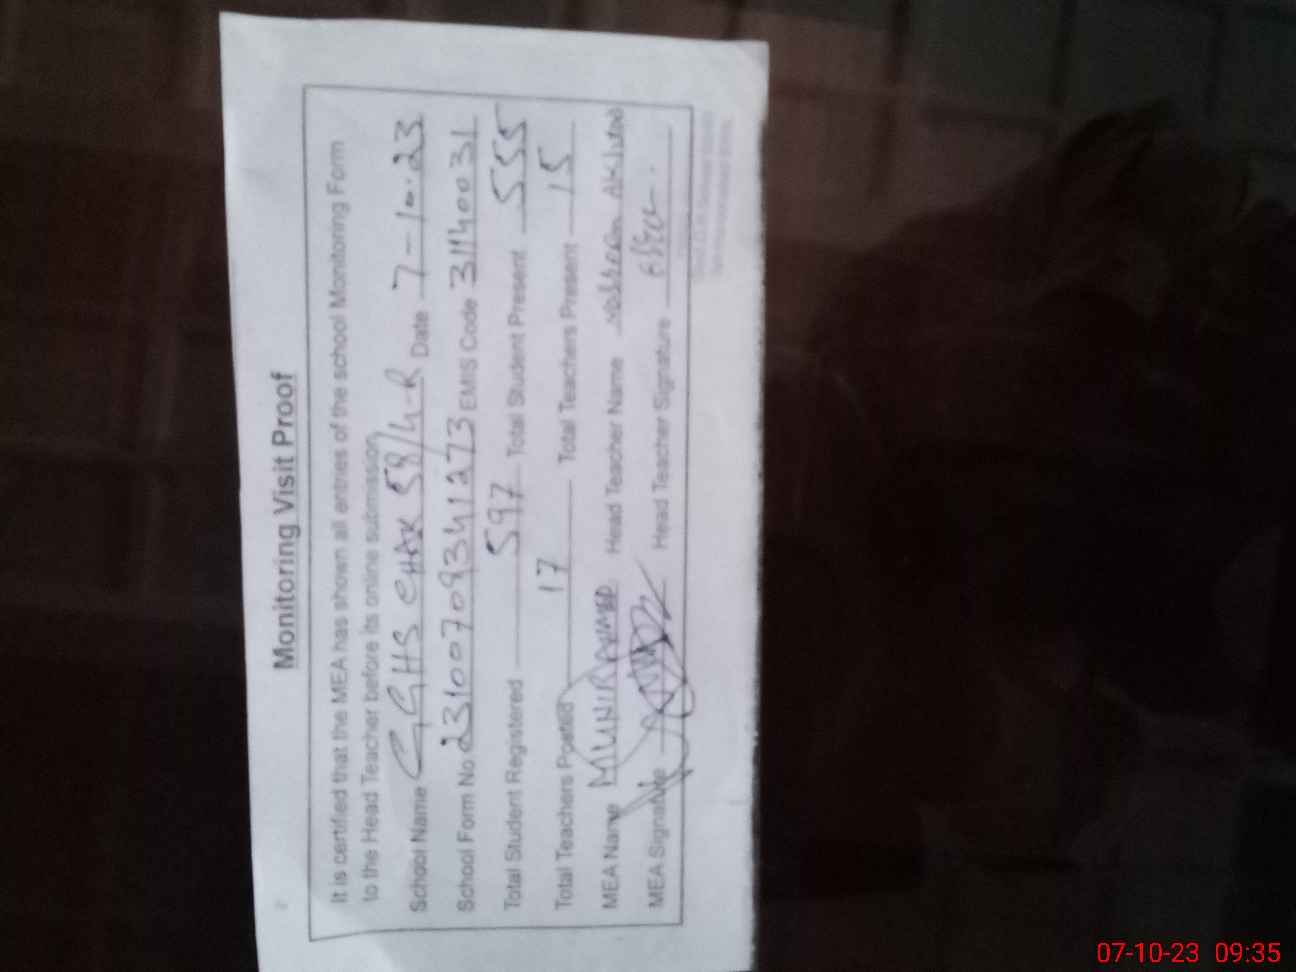 Monitoring Visit Proof
It is certified that the MEA has shown all entries of the school Monitoring Form
to the Head Teacher before its online submission.
School Name GGHS CHAK 58/4-R Date 7-10-23
School Form No 23100709341273 EMIS Code 31140031
Total Student Registered 597 Total Student Present 555
Total Teachers Posted 17 Total Teachers Present 15
MEA Name MUNIR AHMED Head Teacher Name
MEA Signature Head Teacher Signature
07-10-23 09:35